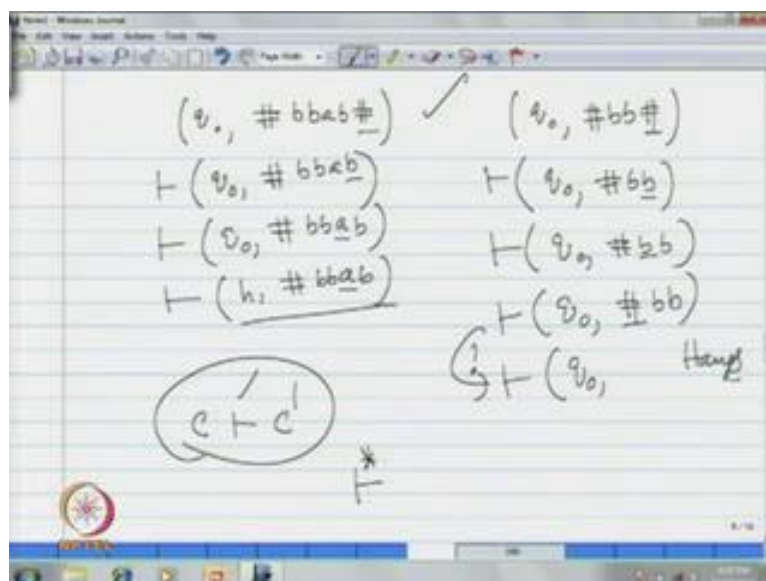 Note1 - Windows Journal
File Edit View Insert Actions Tools Help
Page Width
(q₀, # bbab#) ✓
⊢ (q₀, # bbab)
⊢ (q₀, # bbab)
⊢ (h, # bbab)
C ⊢ C'
⊢*
(q₀, #bb#)
⊢ (q₀, #bb)
⊢ (q₀, #bb)
⊢ (q₀, #bb)
⊢ (q₀, Hangs